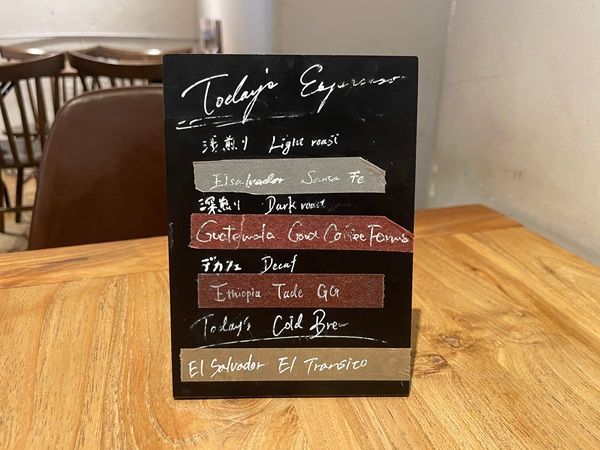 Today's Espresso
浅煎り Light roast
Elsalvador Santa Fe
深煎り Dark roast
Guatemala Good Coffee Farms
デカフェ Decaf
Ethiopia Tade GG
Today's Cold Brew
El Salvador El Transito